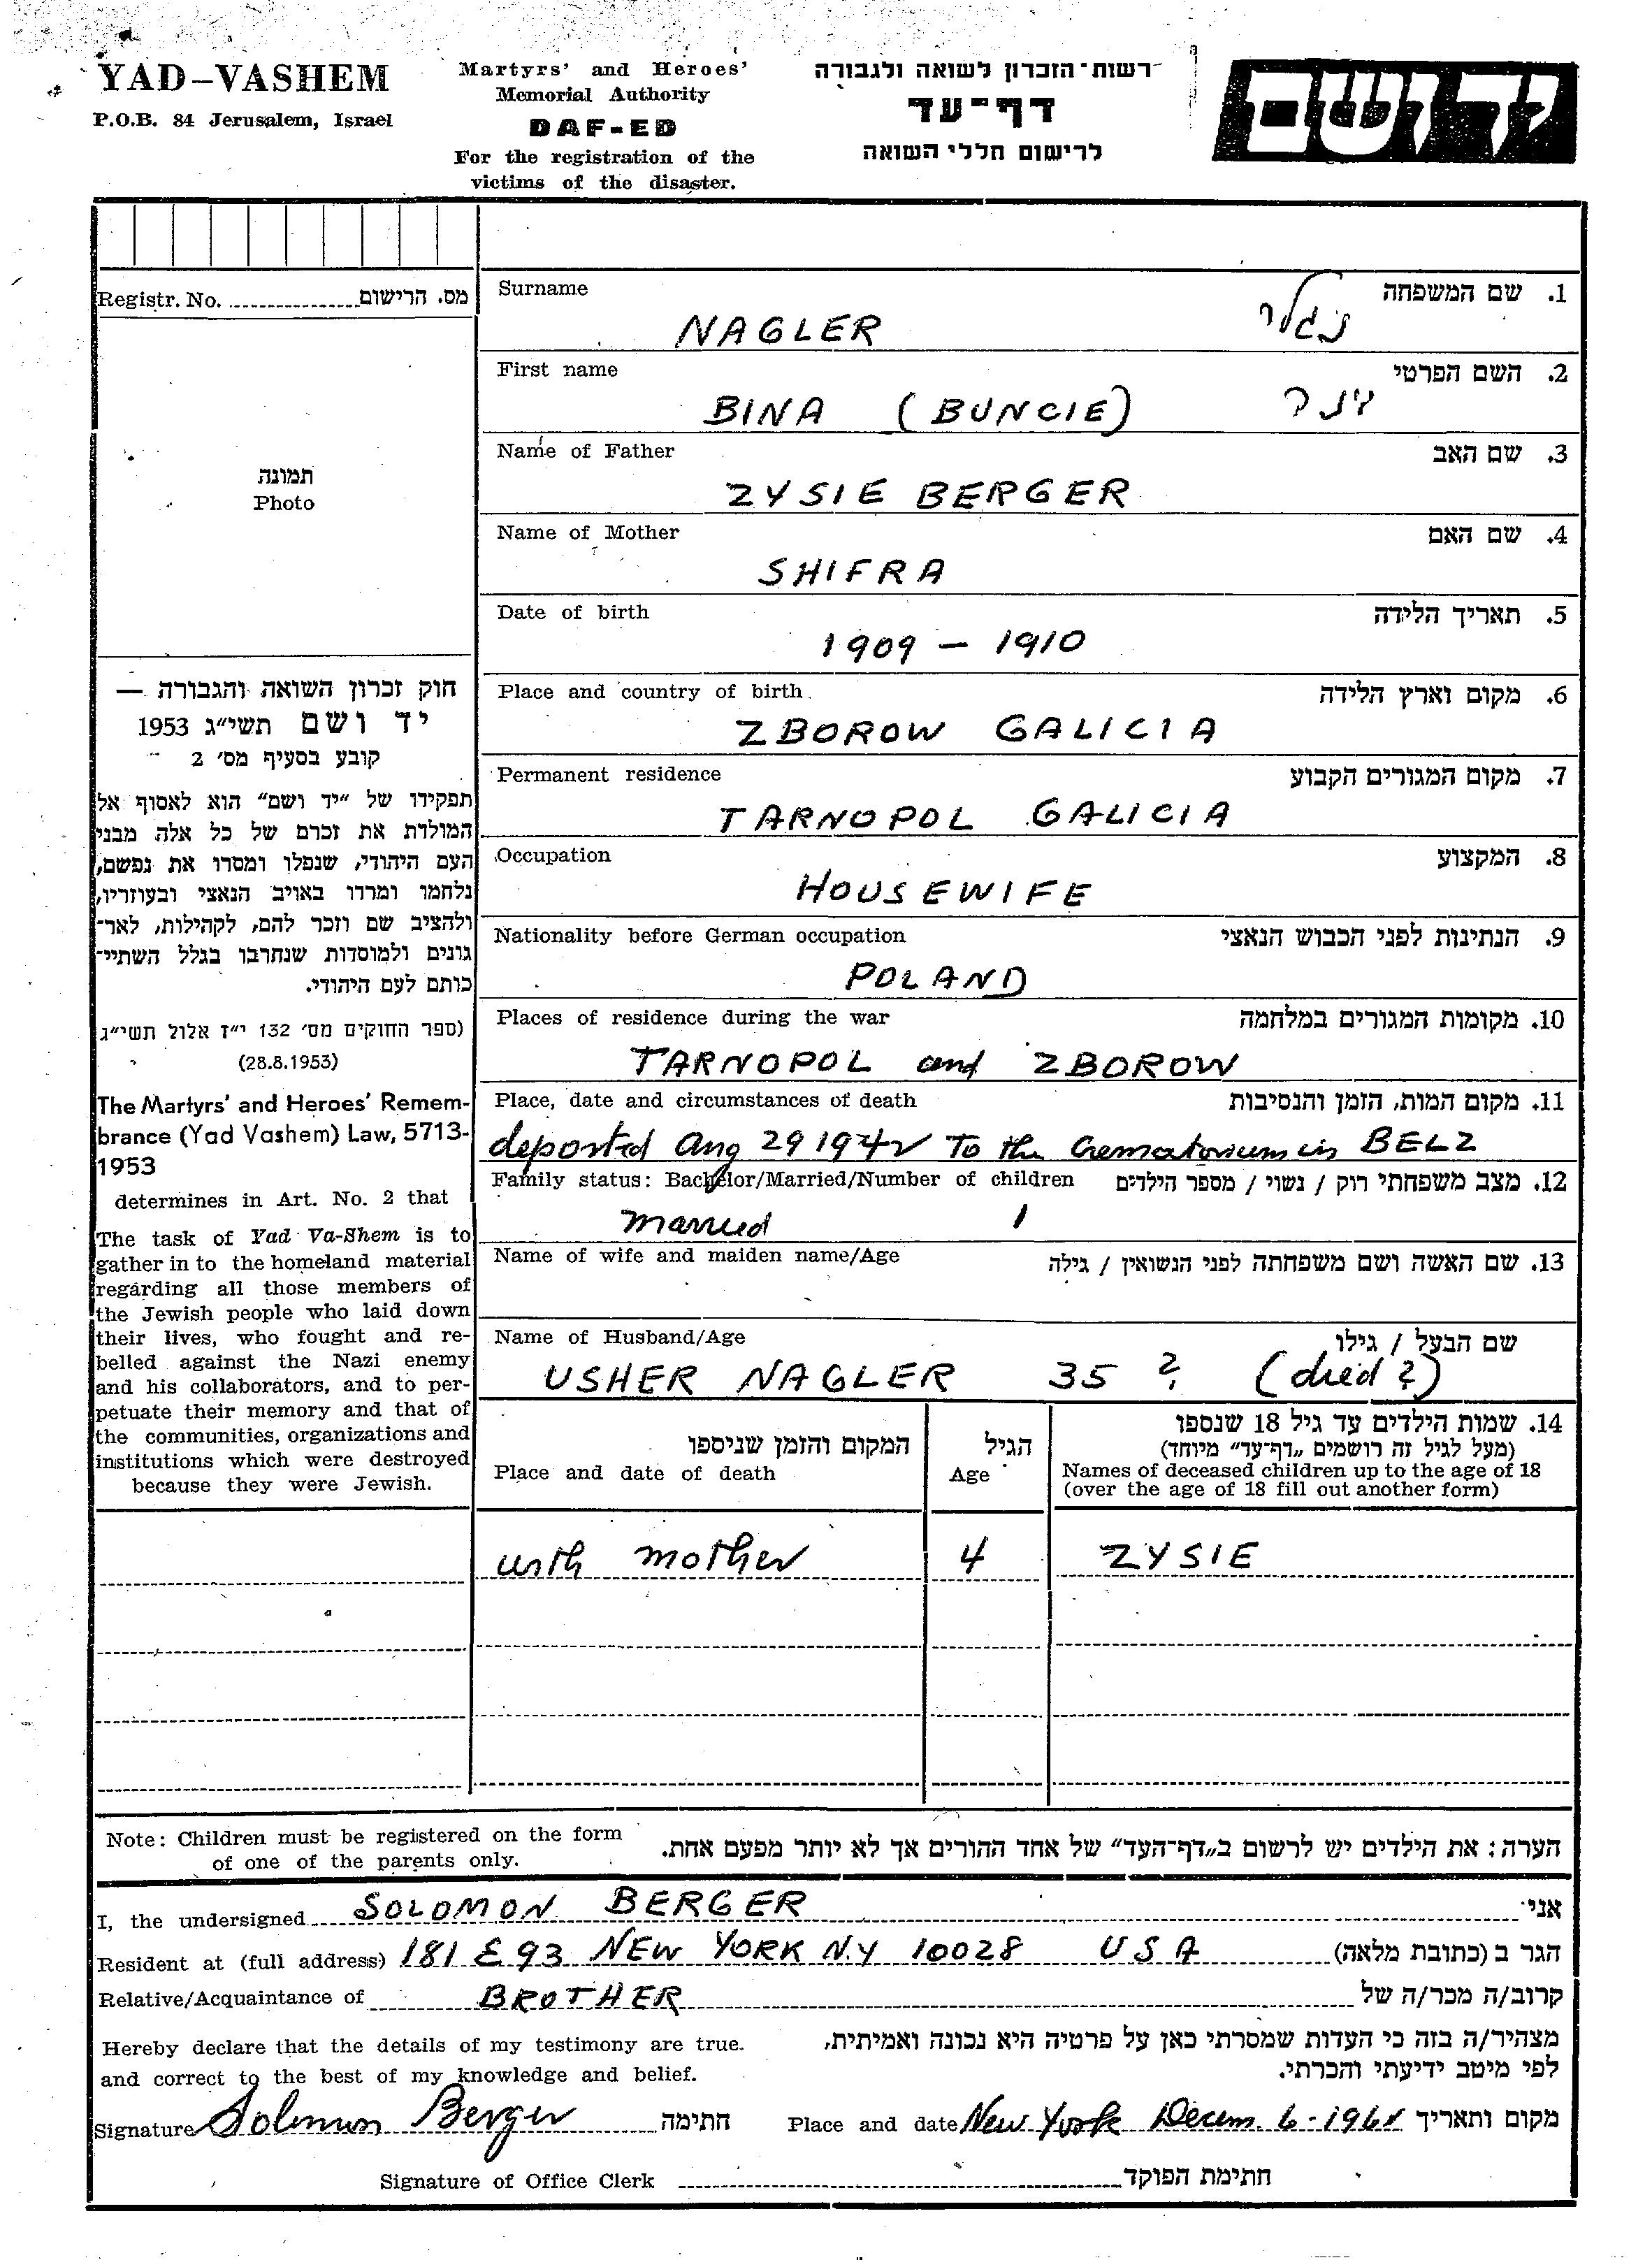 YAD-VASHEM
P.O.B. 84 Jerusalem, Israel
Martyrs' and Heroes'
Memorial Authority
DAF-ED
For the registration of the
victims of the disaster.
רשות־הזכרון לשואה ולגבורה
דף־עד
לרישום חללי השואה
יד ושם
Registr. No. מס. הרישום
תמונה
Photo
חוק זכרון השואה והגבורה —
יד ושם תשי״ג 1953
קובע בסעיף מס׳ 2
תפקידו של "יד ושם" הוא לאסוף אל
המולדת את זכרם של כל אלה מבני
העם היהודי, שנפלו ומסרו את נפשם,
נלחמו ומרדו באויב הנאצי ובעוזריו,
ולהציב שם וזכר להם, לקהילות, לאר־
גונים ולמוסדות שנחרבו בגלל השתיי־
כותם לעם היהודי.
(ספר החוקים מס׳ 132 י״ז אלול תשי״ג
(28.8.1953)
The Martyrs' and Heroes' Remem-
brance (Yad Vashem) Law, 5713-
1953
determines in Art. No. 2 that
The task of Yad Va-Shem is to
gather in to the homeland material
regarding all those members of
the Jewish people who laid down
their lives, who fought and re-
belled against the Nazi enemy
and his collaborators, and to per-
petuate their memory and that of
the communities, organizations and
institutions which were destroyed
because they were Jewish.
Surname 1. שם המשפחה
NAGLER נגלר
First name 2. השם הפרטי
BINA (BUNCIE)
Name of Father 3. שם האב
ZYSIE BERGER
Name of Mother 4. שם האם
SHIFRA
Date of birth 5. תאריך הלידה
1909 – 1910
Place and country of birth 6. מקום וארץ הלידה
ZBOROW GALICIA
Permanent residence 7. מקום המגורים הקבוע
TARNOPOL GALICIA
Occupation 8. המקצוע
HOUSEWIFE
Nationality before German occupation 9. הנתינות לפני הכבוש הנאצי
POLAND
Places of residence during the war 10. מקומות המגורים במלחמה
TARNOPOL and ZBOROW
Place, date and circumstances of death 11. מקום המות, הזמן והנסיבות
deported Aug 29 1942 To the Crematorium in BELZ
Family status: Bachelor/Married/Number of children 12. מצב משפחתי רוק / נשוי / מספר הילדים
married 1
Name of wife and maiden name/Age 13. שם האשה ושם משפחתה לפני הנשואין / גילה
Name of Husband/Age שם הבעל / גילו
USHER NAGLER 35 ? (died ?)
14. שמות הילדים עד גיל 18 שנספו
(מעל לגיל זה רושמים „דף־עד" מיוחד)
המקום והזמן שניספו הגיל
Place and date of death Age Names of deceased children up to the age of 18
(over the age of 18 fill out another form)
with mother 4 ZYSIE
Note: Children must be registered on the form
of one of the parents only.
הערה: את הילדים יש לרשום ב„דף־העד" של אחד ההורים אך לא יותר מפעם אחת.
I, the undersigned SOLOMON BERGER אני
Resident at (full address) 181 E 93 NEW YORK N.Y 10028 USA הגר ב (כתובת מלאה)
Relative/Acquaintance of BROTHER קרוב/ה מכר/ה של
Hereby declare that the details of my testimony are true.
and correct to the best of my knowledge and belief.
מצהיר/ה בזה כי העדות שמסרתי כאן על פרטיה היא נכונה ואמיתית,
לפי מיטב ידיעתי והכרתי.
Signature Solomon Berger חתימה Place and date New York Decem. 6 - מקום ותאריך
Signature of Office Clerk חתימת הפוקד